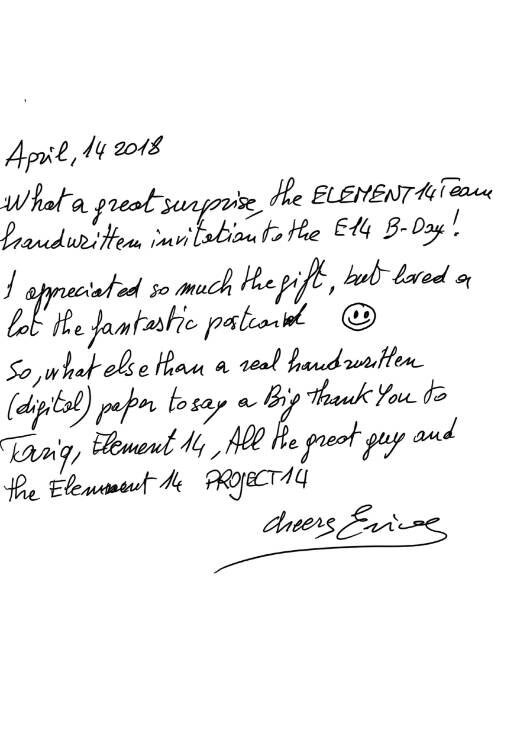 April, 14 2018
What a great surprise, the ELEMENT14 Team
handwritten invitation to the E14 B-Day!
I appreciated so much the gift, but loved a
lot the fantastic postcard
So, what else than a real handwritten
(digital) paper to say a Big thank You to
Tariq, Element 14, All the great guy and
the Element 14 PROJECT14
cheers Enrico